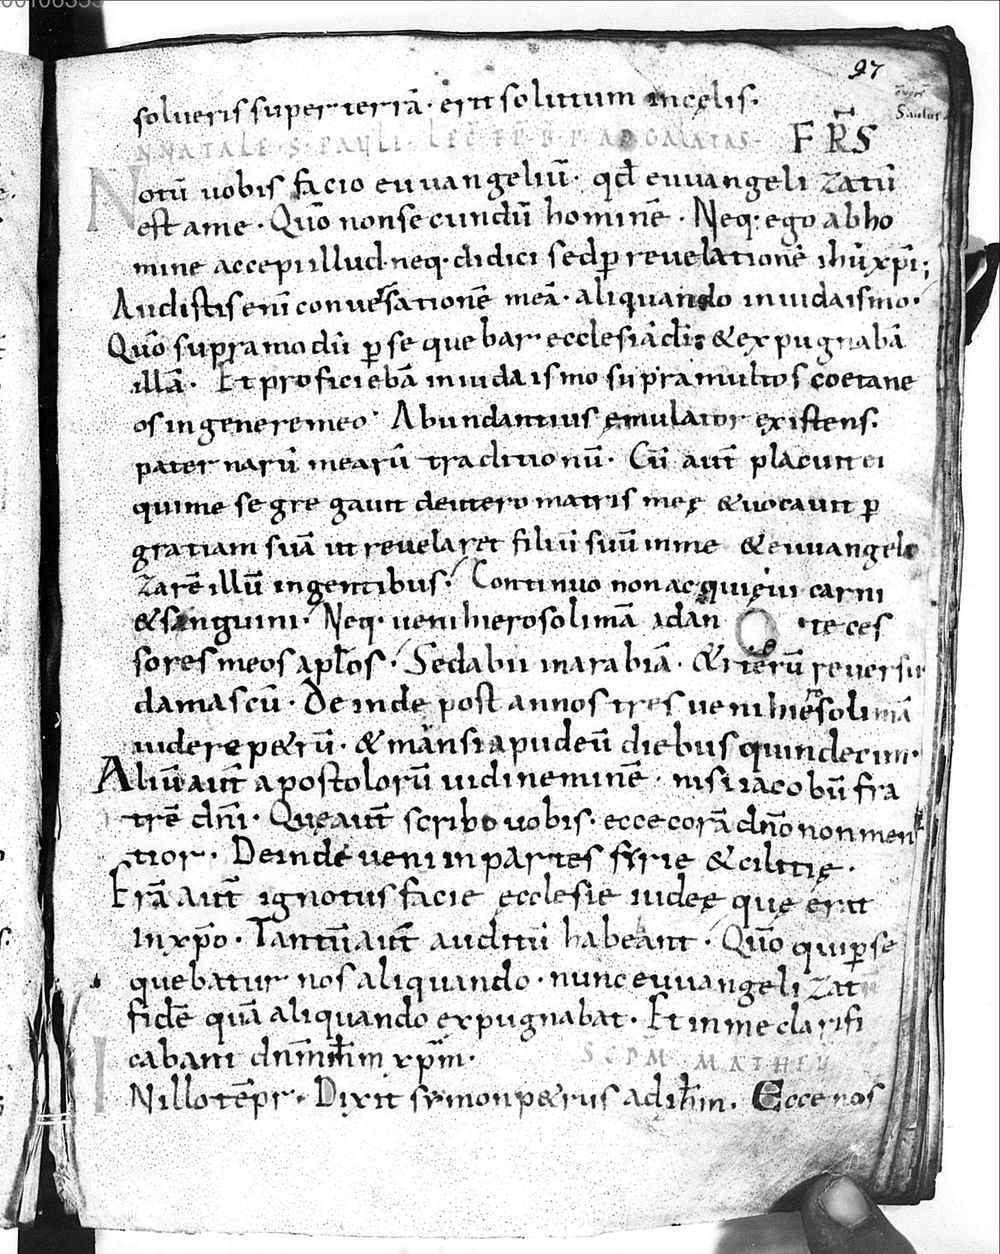 97
solueris super terrā · erit solutum incęlis.
IN NATALE · S · PAULI · LEC̄ EP̄ · B · P · AD GALATAS · FR̄S
Notū uobis facio euuangeliū · qd̄ euuangelizatū
est ame · Quō nonsecundū hominē · Neq· ego abho
mine accepi illud · neq· didici sed ꝑ reuelationē ihū xp̄i;
Audistis enī conuersationē meā · aliquando iniudaismo ·
Quō supra modū ꝑsequebar ecclesiā dī; & expugnabā
illā · Et proficiebā iniudaismo supra multos coetane
os ingenere meo · Abundantius emulator existens ·
paternarū mearū traditionū · Cū aut̄ placuit ei
quime segregauit deutero matris meę & uocauit ꝑ
gratiam suā ut reuelaret filiū suū inme & euuangeli
zarē illū ingentibus · Continuo non acquięui carni
& sanguini · Neq· ueni hierosolimā adan tęces
sores meos apl̄os · Sed abii inarabiā · & iterū reuersu
damascū · Deinde post annos tres ueni hierosolimā
uidere petrū · & mansi apudeū diebus quindecim ·
Aliū aut̄ apostolorū uidi neminē · nisi iacobū fra
trē dn̄i · Que aut̄ scribo uobis · ecce corā dn̄o non ment
tior · Deinde ueni inpartes syrie & cilitię ·
Erā aut̄ ignotus facie ecclesie iudeę quę erit
inxp̄o · Tantū aut̄ auditū habeant · Quō qui ꝑse
quebatur nos aliquando · nunc euuangelizat
fidē quā aliquando expugnabat · Et inme clarifi
cabant dn̄m ihm̄ xp̄m · SCDM MATHEU
INillo tēpr · Dixit symon petrus ad ihm̄ · Ecce nos